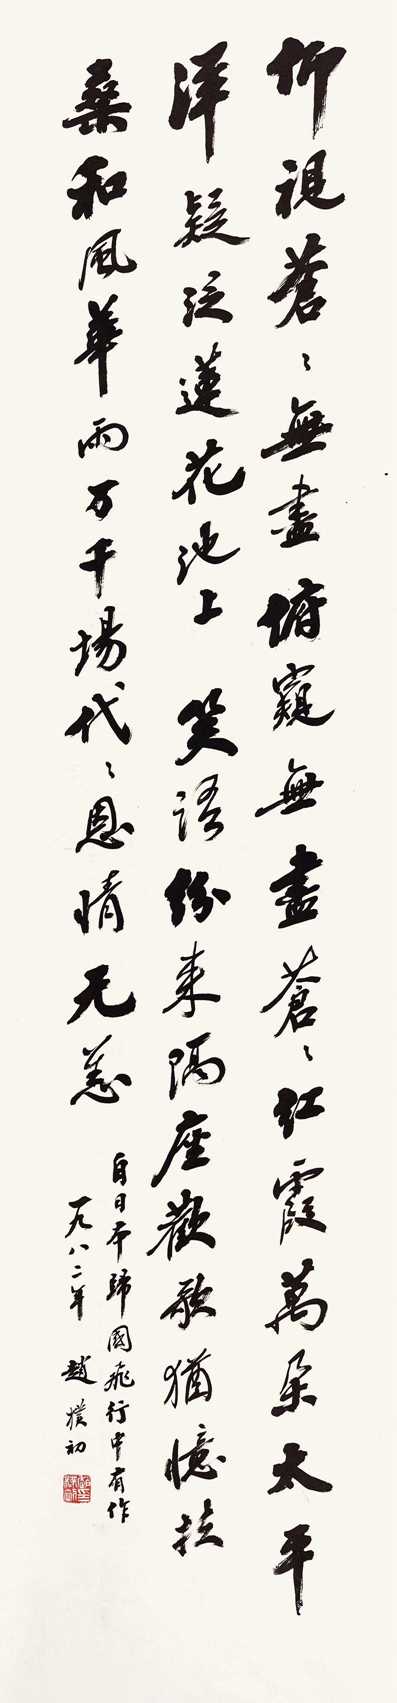 仰視蒼々無盡俯窺無盡蒼々紅霞萬朵太平
洋疑泛蓮花池上 笑語紛来隔座歡歌猶憶扶
桑和風華雨万千場代々恩情无恙
自日本歸國飛行中有作
一九八二年 趙樸初